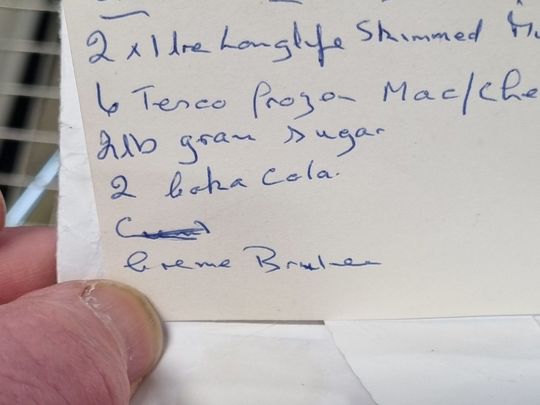 2 x 1 ltre Longlife Skimmed
6 Tesco Frozen Mac/Che
2lb gran Sugar
2 Coka Cola.
Creme Brulee